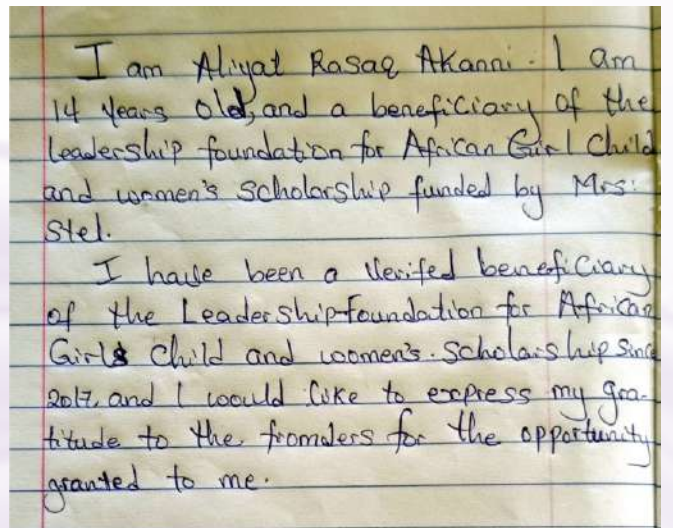 I am Aliyat Rasaq Akanni. I am
14 years old, and a beneficiary of the
Leadership foundation for African Girl Child
and women's Scholarship funded by Mrs.
Stel.
I have been a Verifed beneficiary
of the Leadership foundation for African
Girls Child and women's. Scholarship Since
2017, and I would like to express my gra-
titude to the fromders for the opportunity
granted to me.